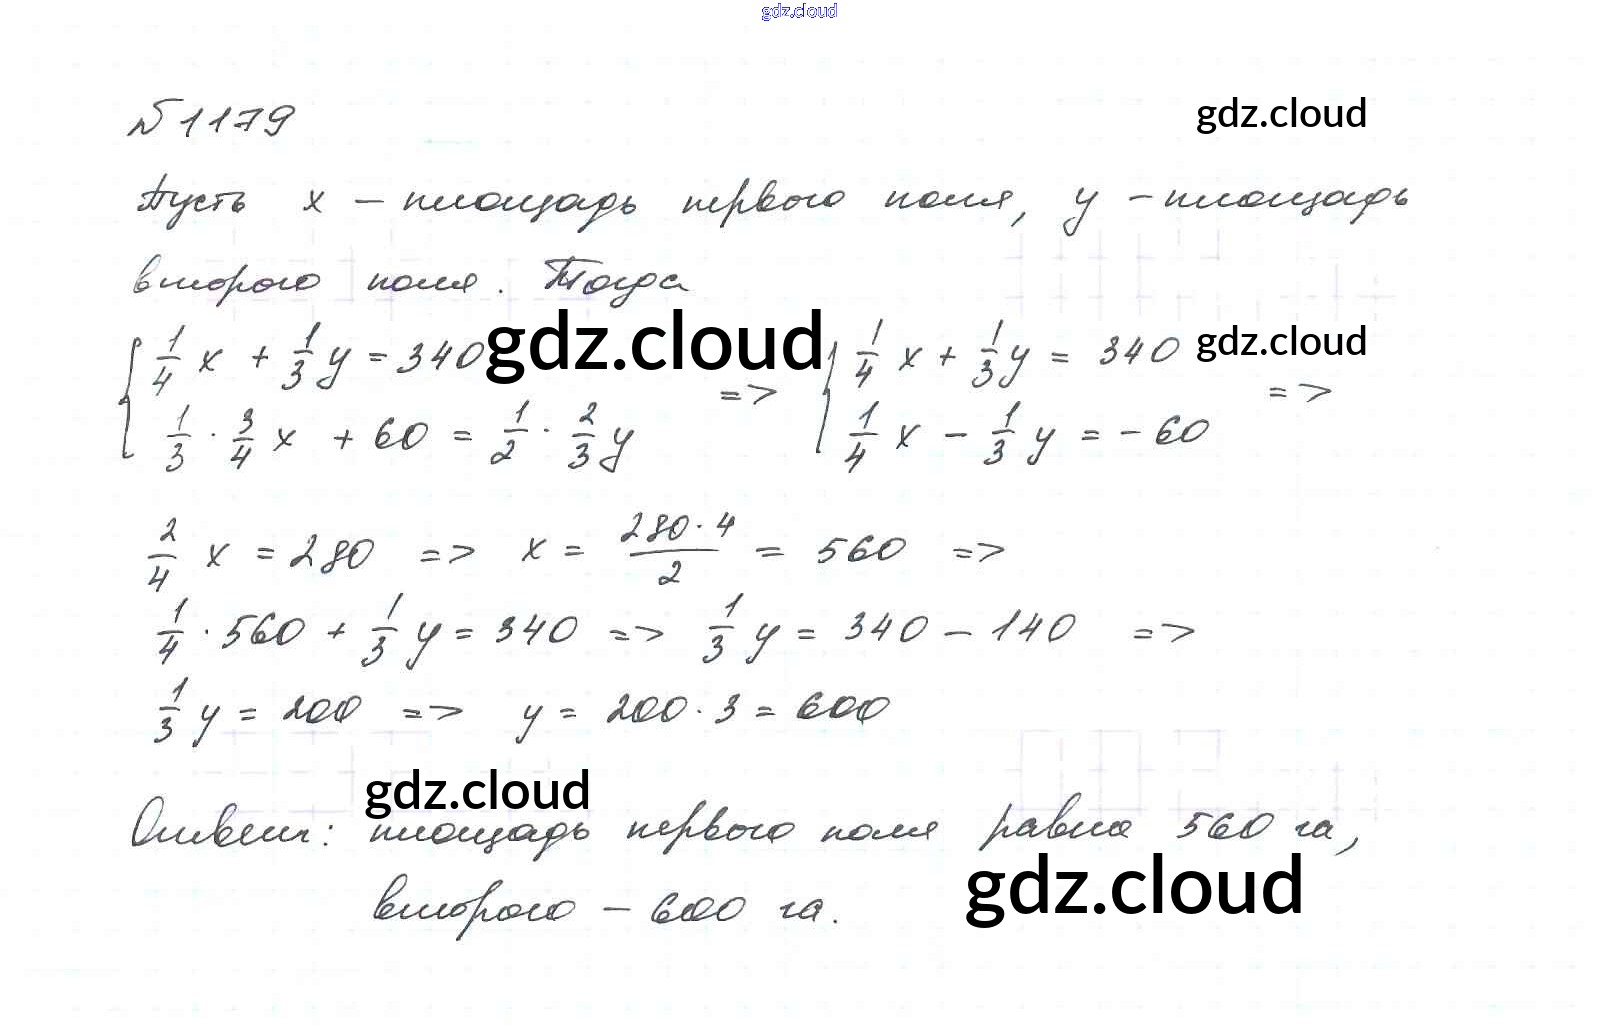 gdz.cloud
№1179
gdz.cloud
Пусть x – площадь первого поля, y – площадь
второго поля. Тогда
{ 1/4 x + 1/3 y = 340 gdz.cloud { 1/4 x + 1/3 y = 340 gdz.cloud
=> =>
1/3 · 3/4 x + 60 = 1/2 · 2/3 y 1/4 x – 1/3 y = –60
2/4 x = 280 => x = 280·4/2 = 560 =>
1/4 · 560 + 1/3 y = 340 => 1/3 y = 340 – 140 =>
1/3 y = 200 => y = 200·3 = 600
gdz.cloud
Ответ: площадь первого поля равна 560 га,
gdz.cloud
второго – 600 га.